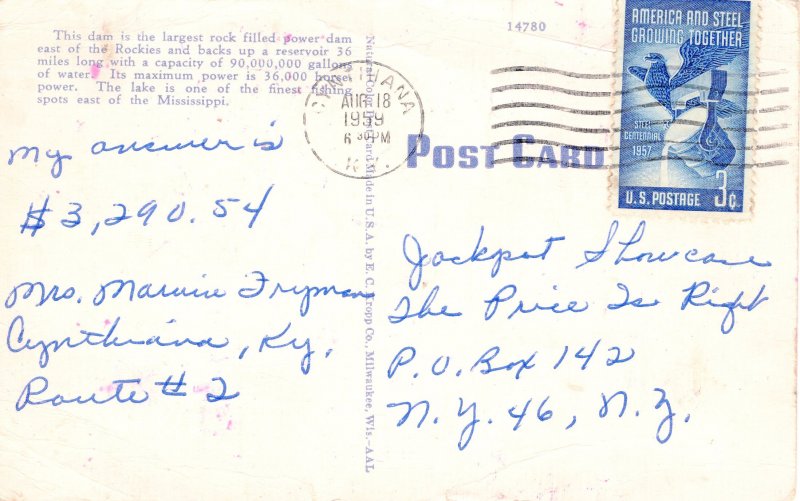 14780
This dam is the largest rock filled power dam
east of the Rockies and backs up a reservoir 36
miles long with a capacity of 90,000,000 gallons
of water. Its maximum power is 36,000 horse
power. The lake is one of the finest fishing
spots east of the Mississippi.
CYNTHIANA
AUG 18
1959
6 30 PM
KY.
AMERICA AND STEEL
GROWING TOGETHER
STEEL
CENTENNIAL
1957
3¢
U.S. POSTAGE
POST CARD
Made in U.S.A. by E. C. Kropp Co., Milwaukee, Wis.-AAL
My answer is
$3,290.54
Mrs. Marvin Fryman
Cynthiana, Ky.
Route # 2
Jackpot Showcase
The Price Is Right
P.O. Box 142
N.Y. 46, N.Y.